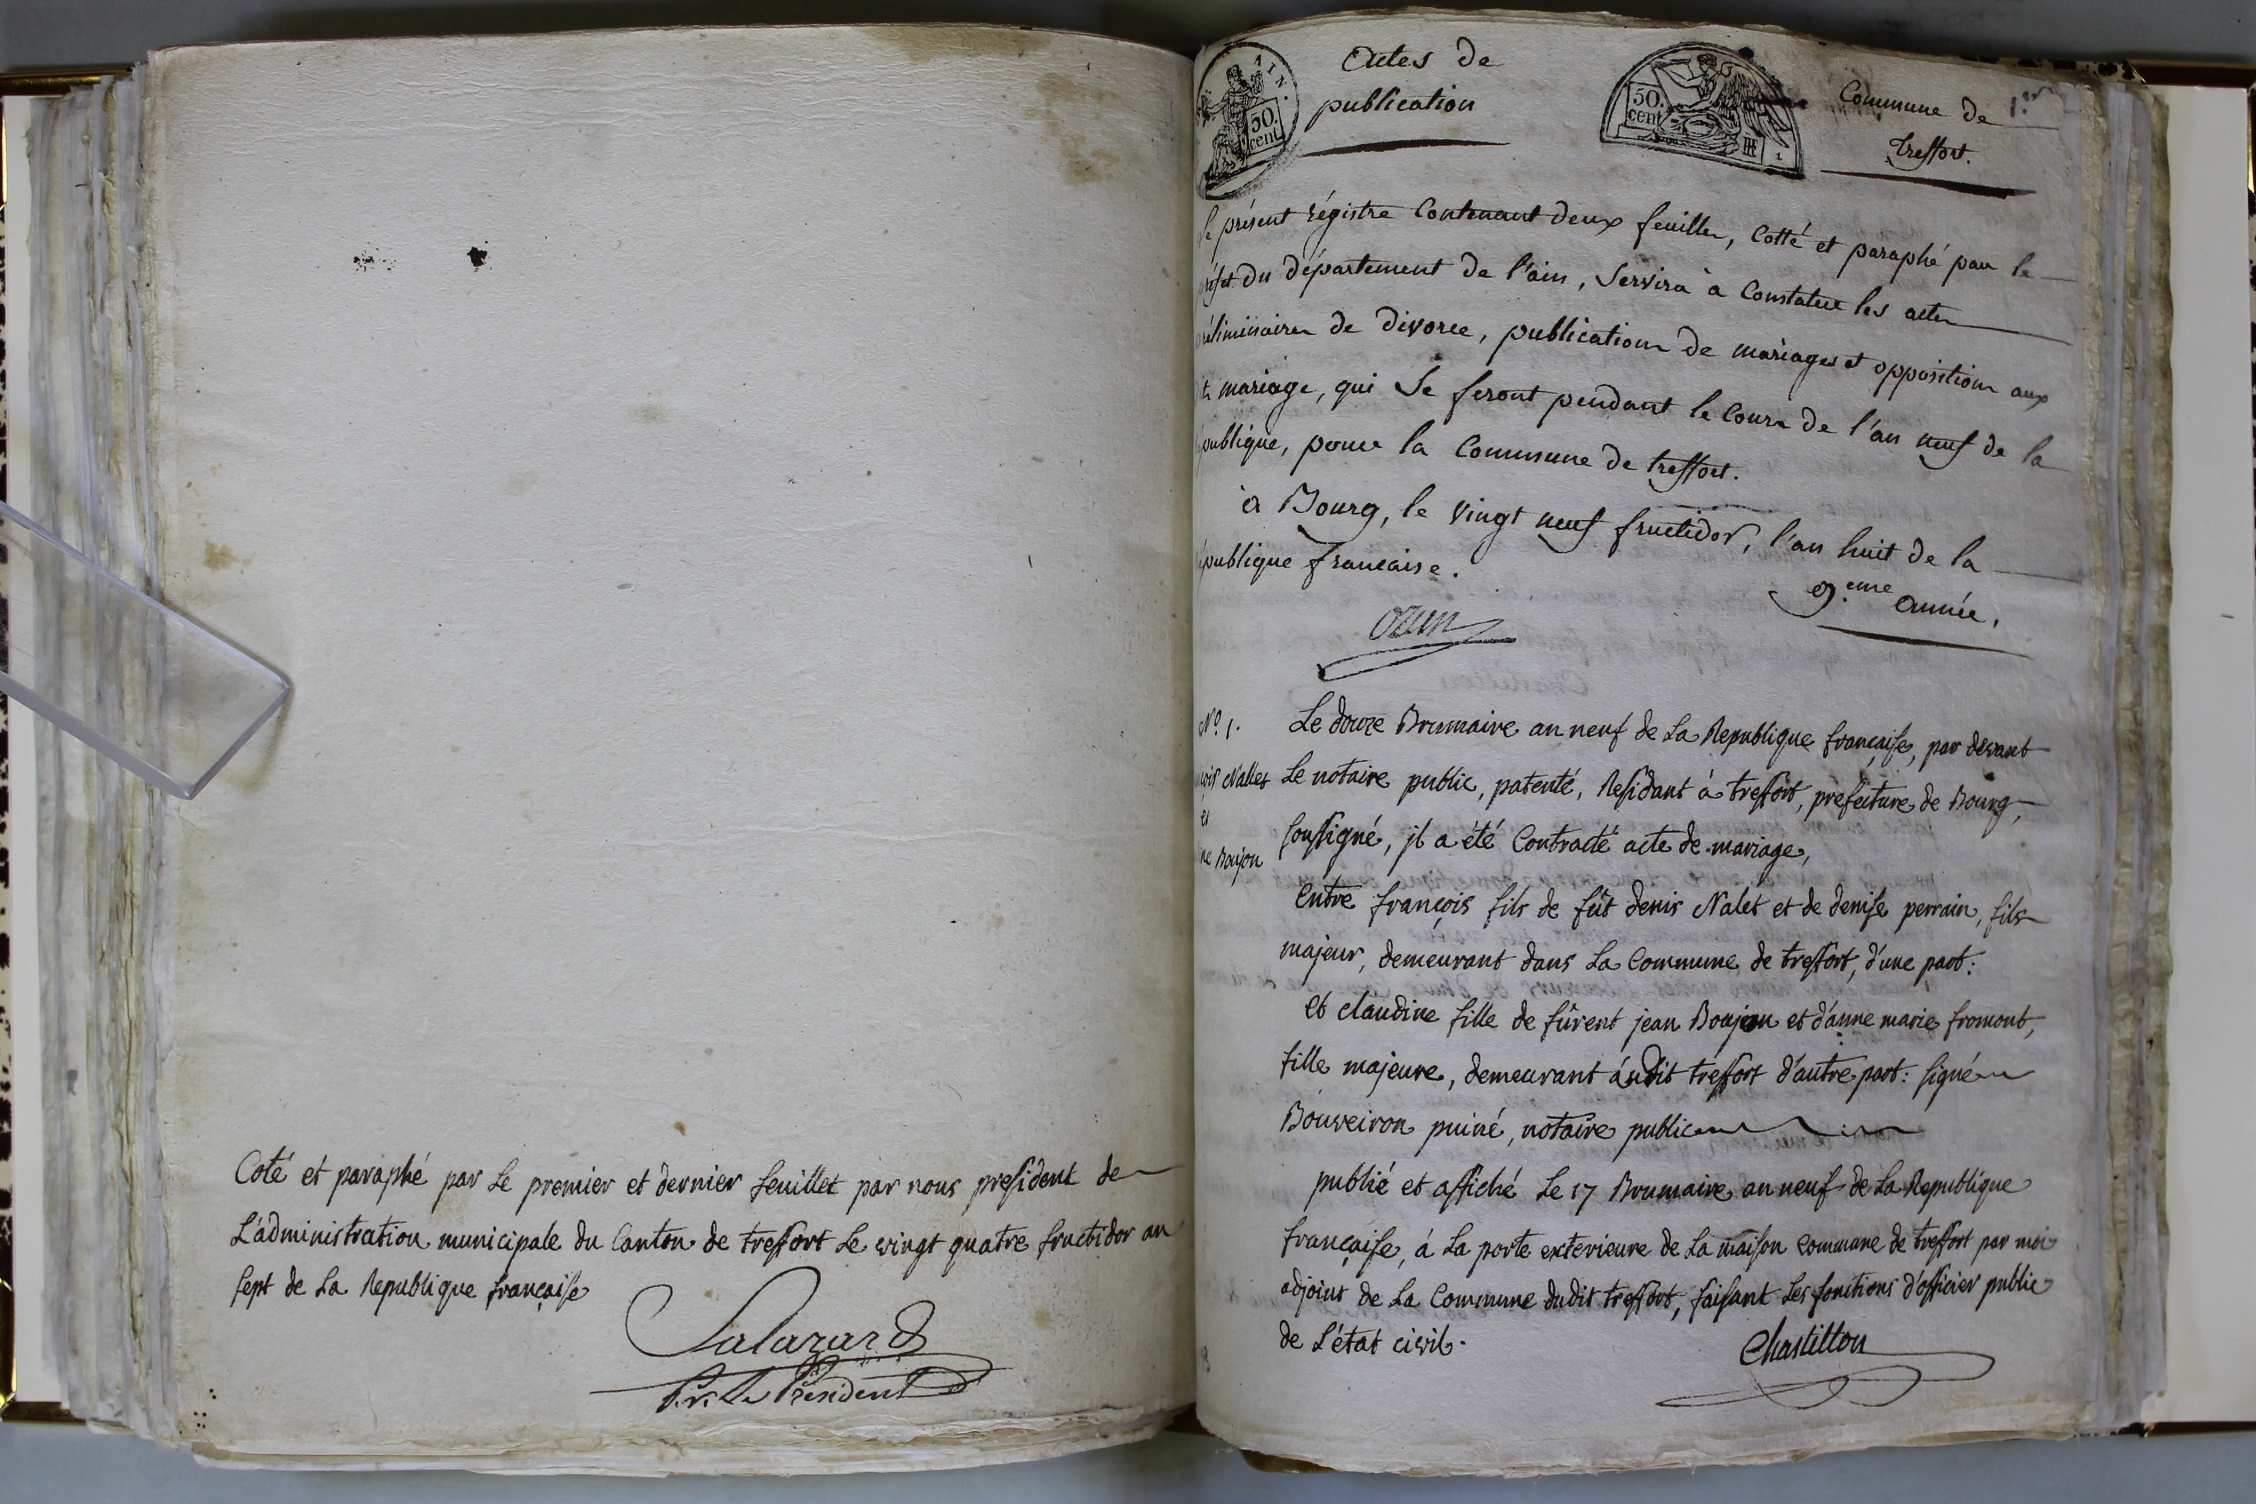 Coté et paraphé par le premier et dernier feuillet par nous president de
L'administration municipale du Canton de treffort le vingt quatre fructidor an
sept de la Republique française
Salazard
P.r. Le Président
AIN.
50.
cent
Actes de
publication
50.
cent
1
Commune de
treffort.
1.er
Le présent régistre Contenant deux feuilles, Cotté et paraphé par le
préfet du département de l'ain, Servira à Constater les actes
préliminaires de divorce, publications de mariages et oppositions aux
mariage, qui Se feront pendant le Cours de l'an neuf de la
république, pour la Commune de treffort.
à Bourg, le vingt neuf fructidor, l'an huit de la
république francaise.
9.eme année.
Ozun
N.º 1.
çois Nallet
et
ne Boujon
Le douze Brumaire an neuf de la Republique française, par devant
Le notaire public, patenté, Residant à treffort, prefecture de Bourg,
soussigné, jl a été Contracté acte de mariage,
Entre françois fils de fût denis Nalet et de denise perrain, fils
majeur, demeurant dans la Commune de treffort, d'une part:
et claudine fille de fûrent jean Boujon et d'anne marie fromont,
fille majeure, demeurant audit treffort d'autre part: signé
Bouveiron puiné, notaire public
publié et affiché le 17 Brumaire an neuf de la Republique
française, à la porte exterieure de la maison commune de treffort par moi
adjoint de la Commune dudit treffort, faisant les fonctions d'officier public
de L'état civil.
Chastillon